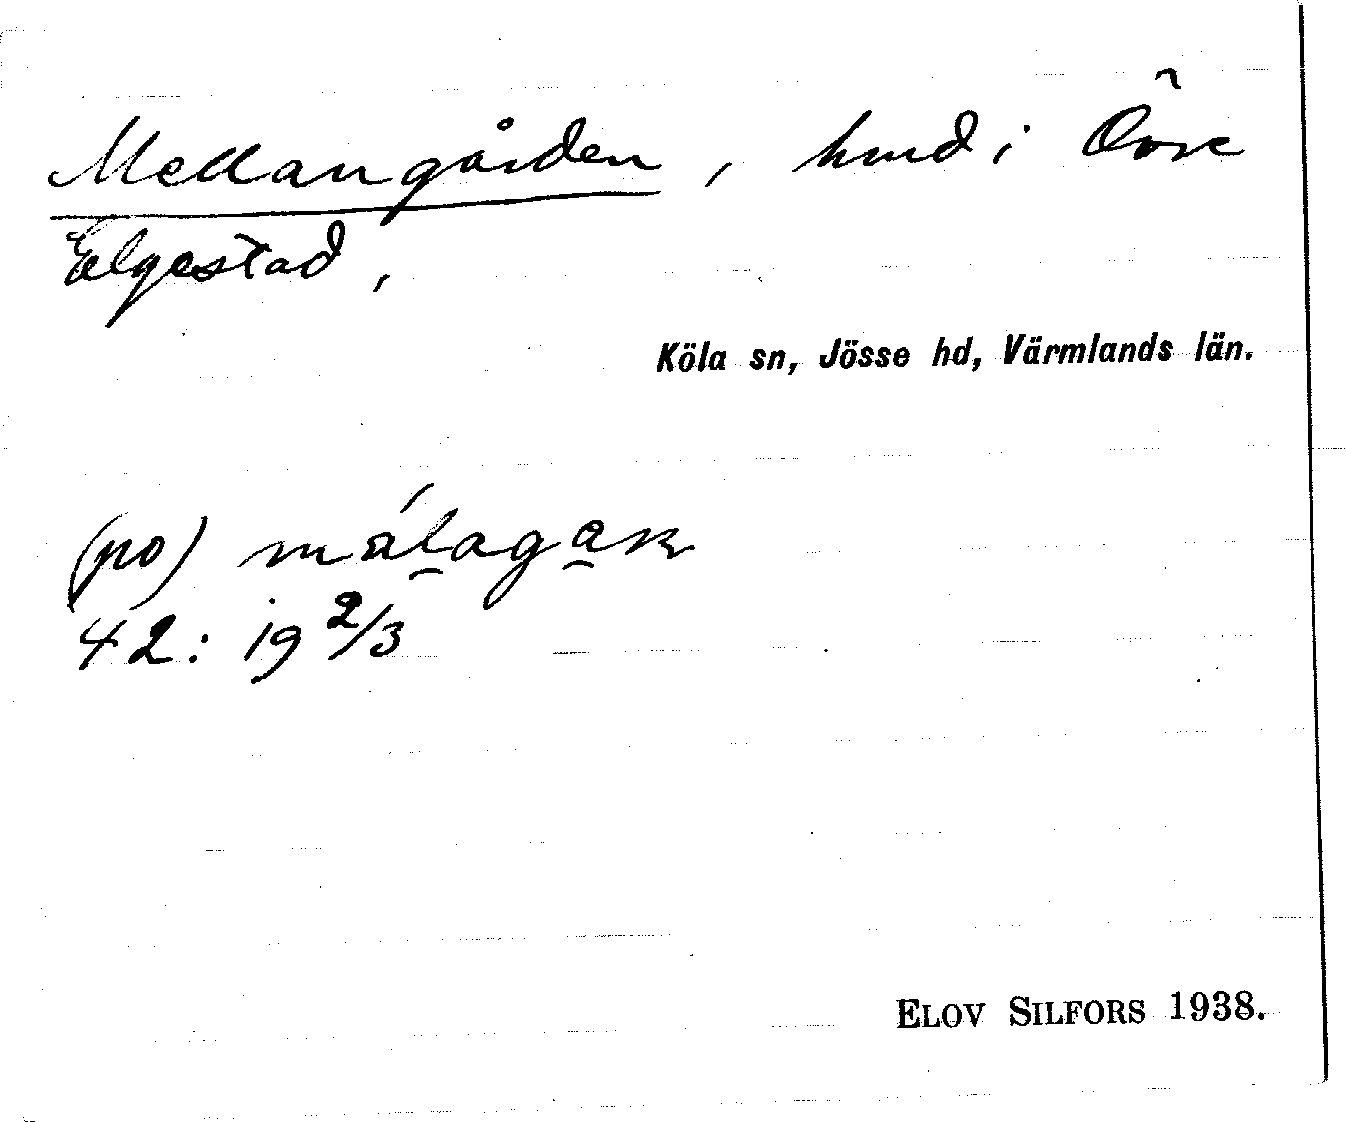 Mellangården, hmd i Övre
Elgestad,
Köla sn, Jösse hd, Värmlands län.
(po)
42: 19 2/3
ELOV SILFORS 1938.